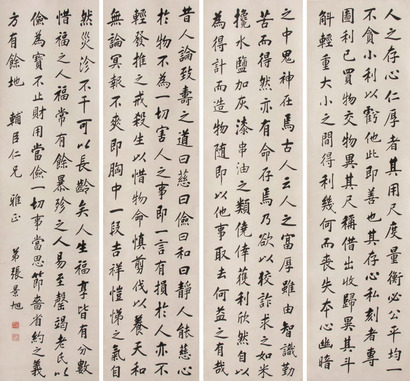 人之存心仁厚者其用尺度量衡必公平均一
不貪小利以虧他此即善也其存心私刻者專
圖利己買物交物異其尺稱借出收歸異其斗
斛輕重大小之間得利幾何而喪失本心幽暗
之中鬼神在焉古人云人之富厚雖由智識勤
苦而得然亦有命存焉乃欲以狡詐求之如米
攙水鹽加灰漆串油之類僥倖獲利欣然自以
為得計而造物隨即以他事取去何益之有哉
昔人論致壽之道曰慈曰儉曰和曰靜人能慈心
於物不為一切害人之事即一言有損於人亦不
輕發推之戒殺生以惜物命慎剪伐以養天和
無論冥報不爽即胸中一段吉祥愷悌之氣自
然災沴不干可以長齡矣人生福享皆有分數
惜福之人福常有餘暴殄之人易至罄竭老氏以
儉為寶不止財用當儉一切事當思節嗇省約之義
方有餘地 輔臣仁兄 雅正
弟張景旭